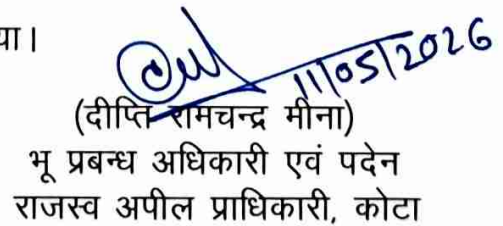 या।
11/05/2026
(दीप्ति रामचन्द्र मीना)
भू प्रबन्ध अधिकारी एवं पदेन
राजस्व अपील प्राधिकारी, कोटा